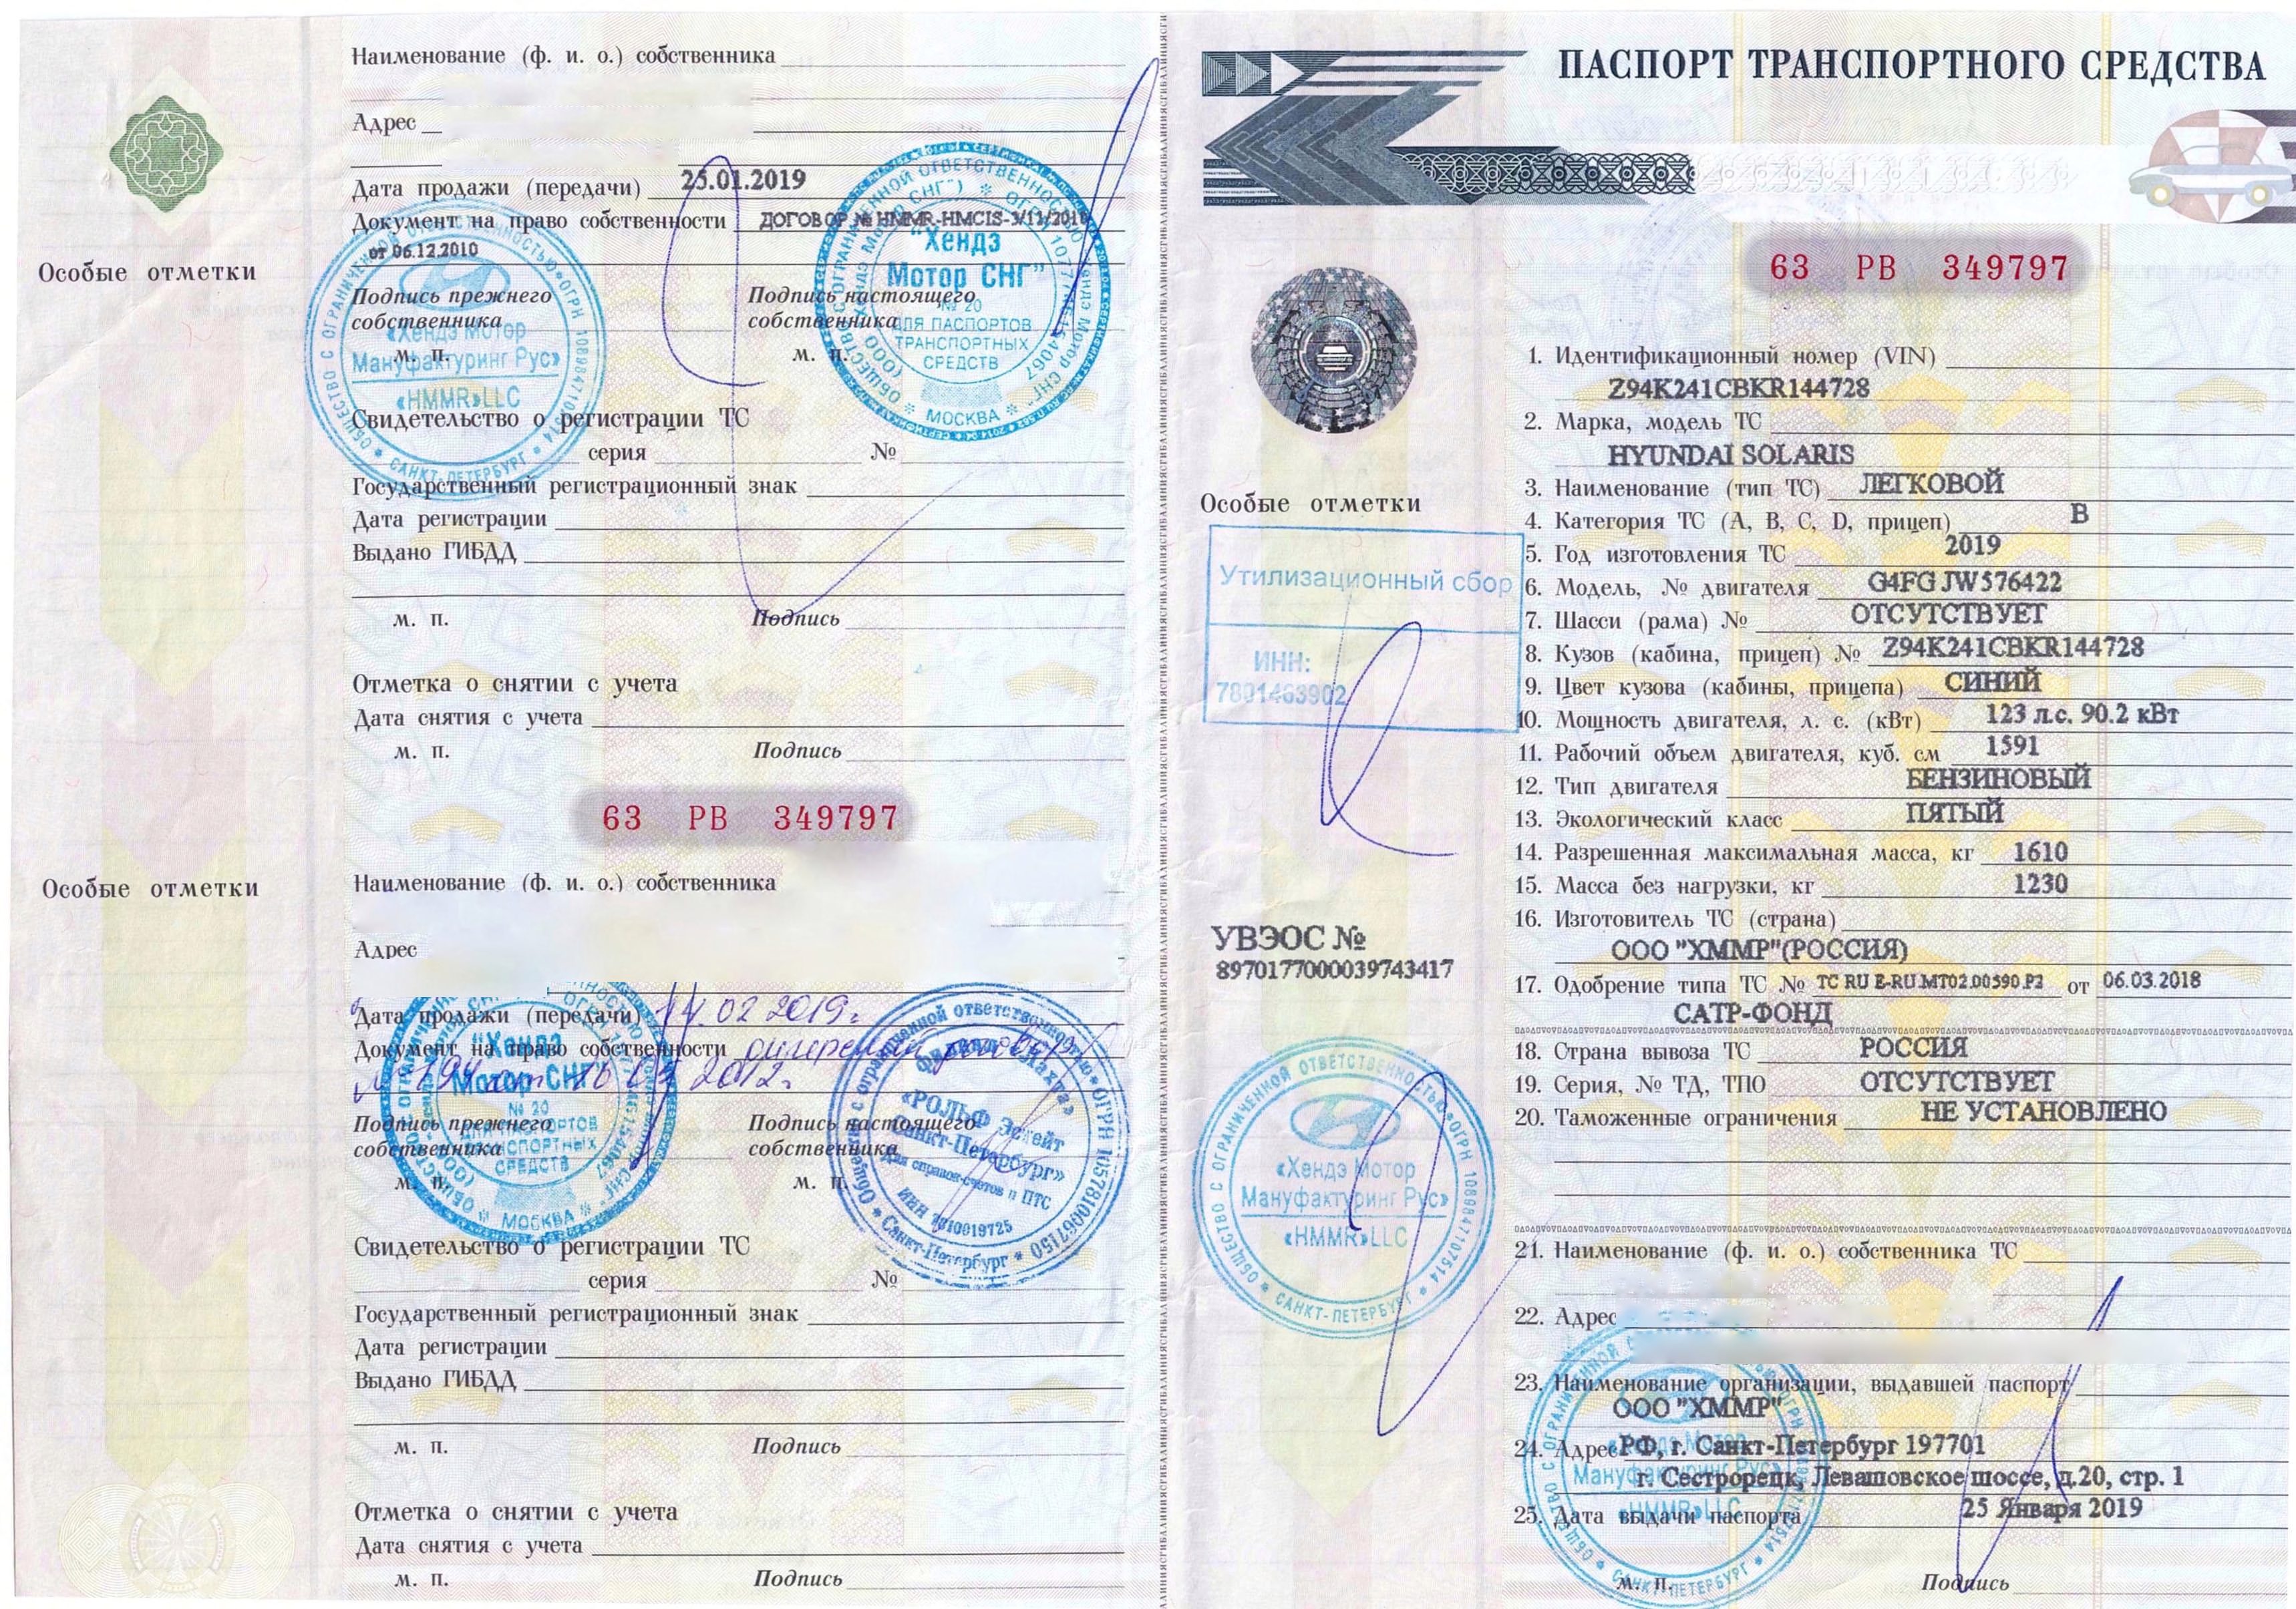 Наименование (ф. и. о.) собственника
Адрес
Дата продажи (передачи) 25.01.2019
Документ на право собственности ДОГОВОР № HMMR-HMCIS-3/11/2010
от 06.12.2010
Особые отметки
Подпись прежнего собственника
Подпись настоящего собственника
м. п.
м. п.
«Хендэ Мотор
Мануфактуринг Рус»
«HMMR»LLC
САНКТ-ПЕТЕРБУРГ
"Хендэ
Мотор СНГ"
№ 20
ДЛЯ ПАСПОРТОВ
ТРАНСПОРТНЫХ
СРЕДСТВ
МОСКВА
Свидетельство о регистрации ТС
серия №
Государственный регистрационный знак
Дата регистрации
Выдано ГИБДД
м. п. Подпись
Отметка о снятии с учета
Дата снятия с учета
м. п. Подпись
63 РВ 349797
Особые отметки
Наименование (ф. и. о.) собственника
Адрес
Дата продажи (передачи) 14.02 2019г
Документ на право собственности
2012г
Подпись прежнего собственника
Подпись настоящего собственника
м. п.
м. п.
"Хендэ
Мотор СНГ"
№ 20
ДЛЯ ПАСПОРТОВ
ТРАНСПОРТНЫХ
СРЕДСТВ
МОСКВА
«РОЛЬФ Эстейт
Санкт-Петербург»
Для справок-счетов и ПТС
ИНН 7810019725
Санкт-Петербург
ОГРН 1057810067150
Свидетельство о регистрации ТС
серия №
Государственный регистрационный знак
Дата регистрации
Выдано ГИБДД
м. п. Подпись
Отметка о снятии с учета
Дата снятия с учета
м. п. Подпись
ПАСПОРТ ТРАНСПОРТНОГО СРЕДСТВА
63 РВ 349797
Особые отметки
Утилизационный сбор
ИНН:
7801463902
УВЭОС №
8970177000039743417
ОБЩЕСТВО С ОГРАНИЧЕННОЙ ОТВЕТСТВЕННОСТЬЮ ОГРН 1089847107514
«Хендэ Мотор
Мануфактуринг Рус»
«HMMR»LLC
САНКТ-ПЕТЕРБУРГ
1. Идентификационный номер (VIN)
Z94K241CBKR144728
2. Марка, модель ТС
HYUNDAI SOLARIS
3. Наименование (тип ТС) ЛЕГКОВОЙ
4. Категория ТС (A, B, C, D, прицеп) B
5. Год изготовления ТС 2019
6. Модель, № двигателя G4FG JW576422
7. Шасси (рама) № ОТСУТСТВУЕТ
8. Кузов (кабина, прицеп) № Z94K241CBKR144728
9. Цвет кузова (кабины, прицепа) СИНИЙ
10. Мощность двигателя, л. с. (кВт) 123 л.с. 90.2 кВт
11. Рабочий объем двигателя, куб. см 1591
12. Тип двигателя БЕНЗИНОВЫЙ
13. Экологический класс ПЯТЫЙ
14. Разрешенная максимальная масса, кг 1610
15. Масса без нагрузки, кг 1230
16. Изготовитель ТС (страна)
ООО "ХММР"(РОССИЯ)
17. Одобрение типа ТС № ТС RU E-RU.MT02.00590.P2 от 06.03.2018
САТР-ФОНД
18. Страна вывоза ТС РОССИЯ
19. Серия, № ТД, ТПО ОТСУТСТВУЕТ
20. Таможенные ограничения НЕ УСТАНОВЛЕНО
21. Наименование (ф. и. о.) собственника ТС
22. Адрес
23. Наименование организации, выдавшей паспорт
ООО "ХММР"
24. Адрес РФ, г. Санкт-Петербург 197701
г. Сестрорецк, Левашовское шоссе, д.20, стр. 1
25. Дата выдачи паспорта 25 Января 2019
м. п. Подпись